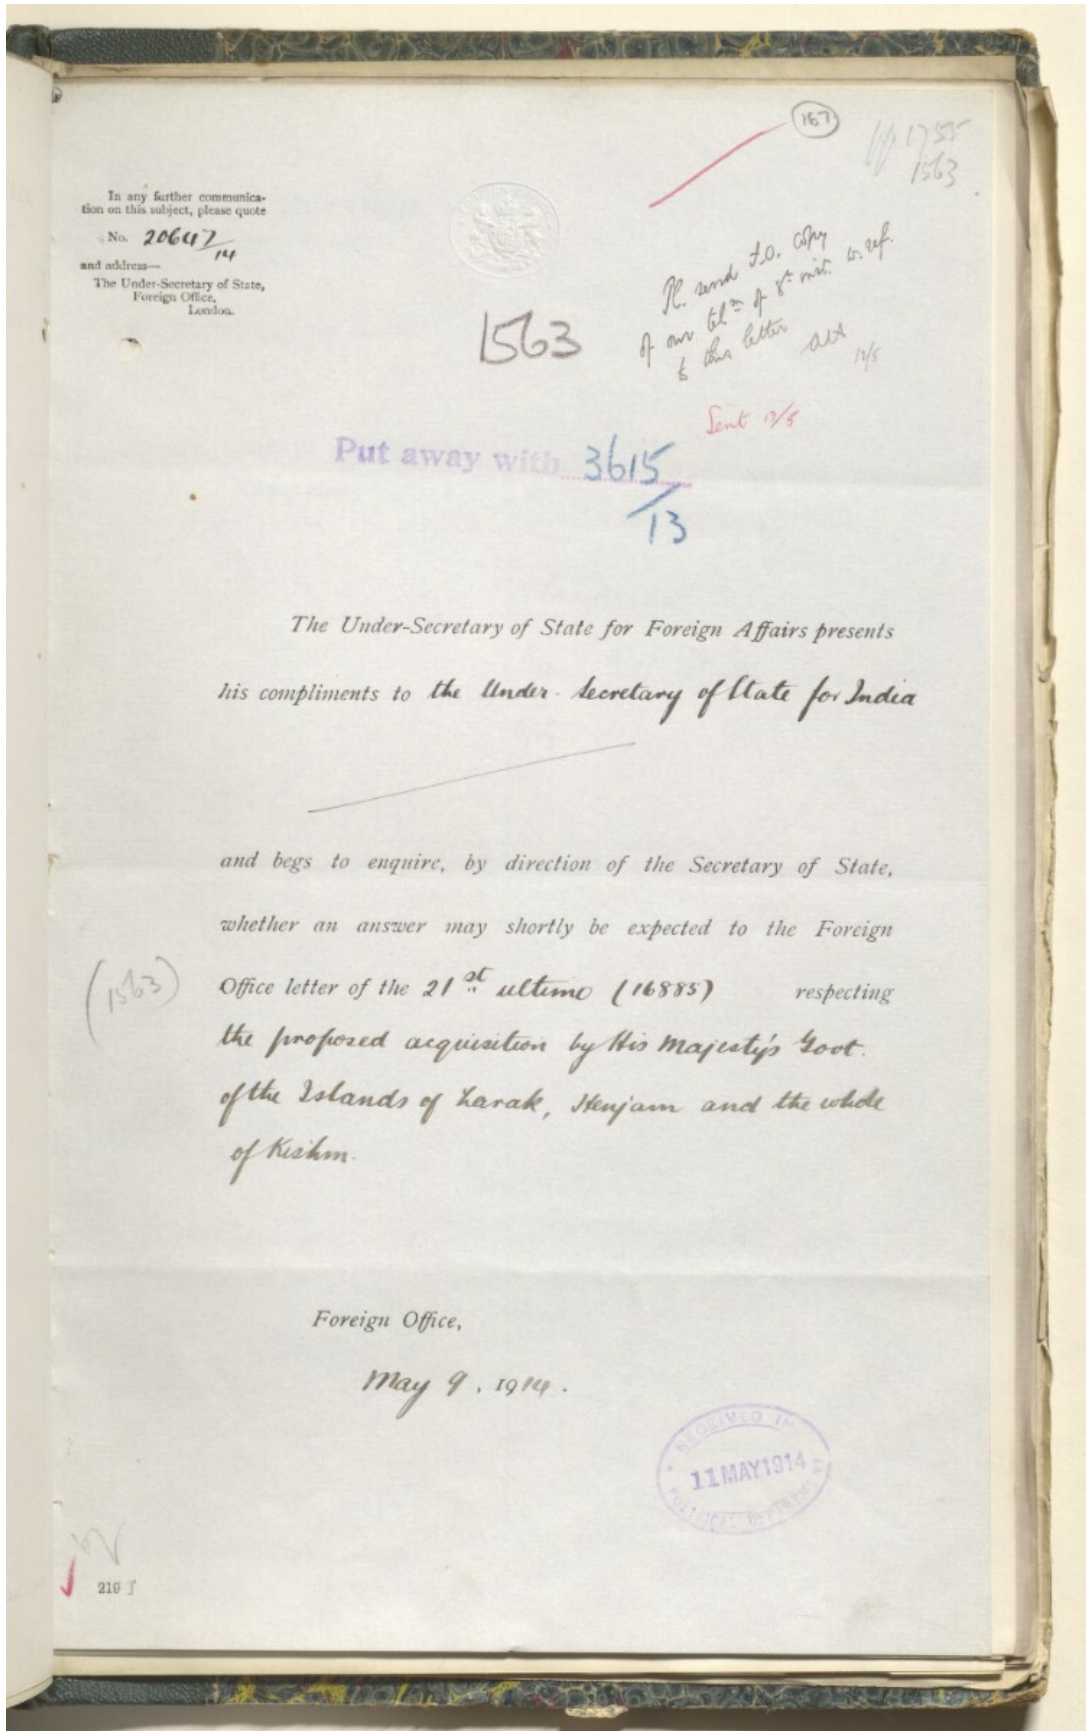 167
1755
1563
In any further communica-
tion on this subject, please quote
No. 20647/14
and address—
The Under-Secretary of State,
Foreign Office,
London.
Pl. send F.O. copy
of our telm of 8th inst. w. ref.
to this letter
12/5
1563
Sent 13/5
Put away with 3615/13
The Under-Secretary of State for Foreign Affairs presents
his compliments to the Under-Secretary of State for India
and begs to enquire, by direction of the Secretary of State,
whether an answer may shortly be expected to the Foreign
(1563)
Office letter of the 21st ultimo (16885) respecting
the proposed acquisition by His Majesty's Govt.
of the Islands of Larak, Henjam and the whole
of Kishm.
Foreign Office,
May 9, 1914.
RECEIVED IN
11 MAY 1914
POLITICAL DEPARTMENT
219